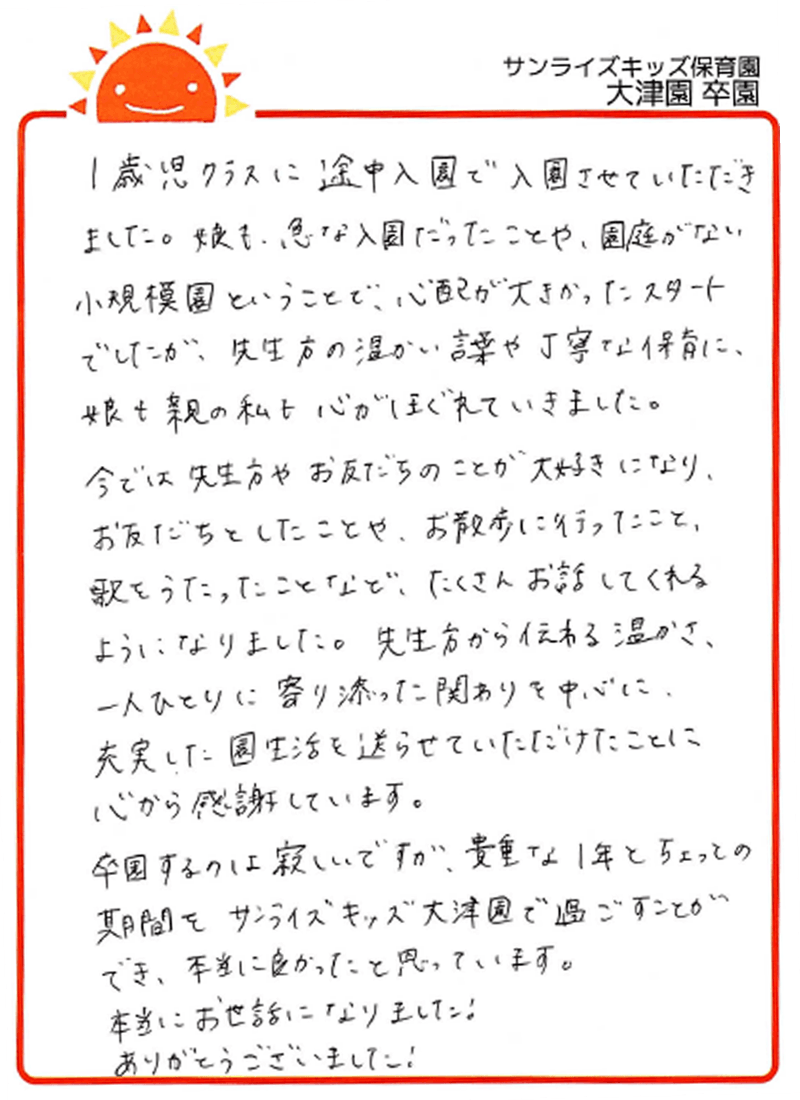 サンライズキッズ保育園
大津園 卒園
1歳児クラスに途中入園で入園させていただき
ました。娘も、急な入園だったことや、園庭がない
小規模園ということで、心配が大きかったスタート
でしたが、先生方の温かい言葉や丁寧な保育に、
娘も親の私も心がほぐれていきました。
今では先生方やお友だちのことが大好きになり、
お友だちとしたことや、お散歩に行ったこと、
歌をうたったことなど、たくさんお話してくれる
ようになりました。先生方から伝わる温かさ、
一人ひとりに寄り添った関わりを中心に、
充実した園生活を送らせていただけたことに
心から感謝しています。
卒園するのは寂しいですが、貴重な1年とちょっとの
期間をサンライズキッズ大津園で過ごすことが
でき、本当に良かったと思っています。
本当にお世話になりました!
ありがとうございました!